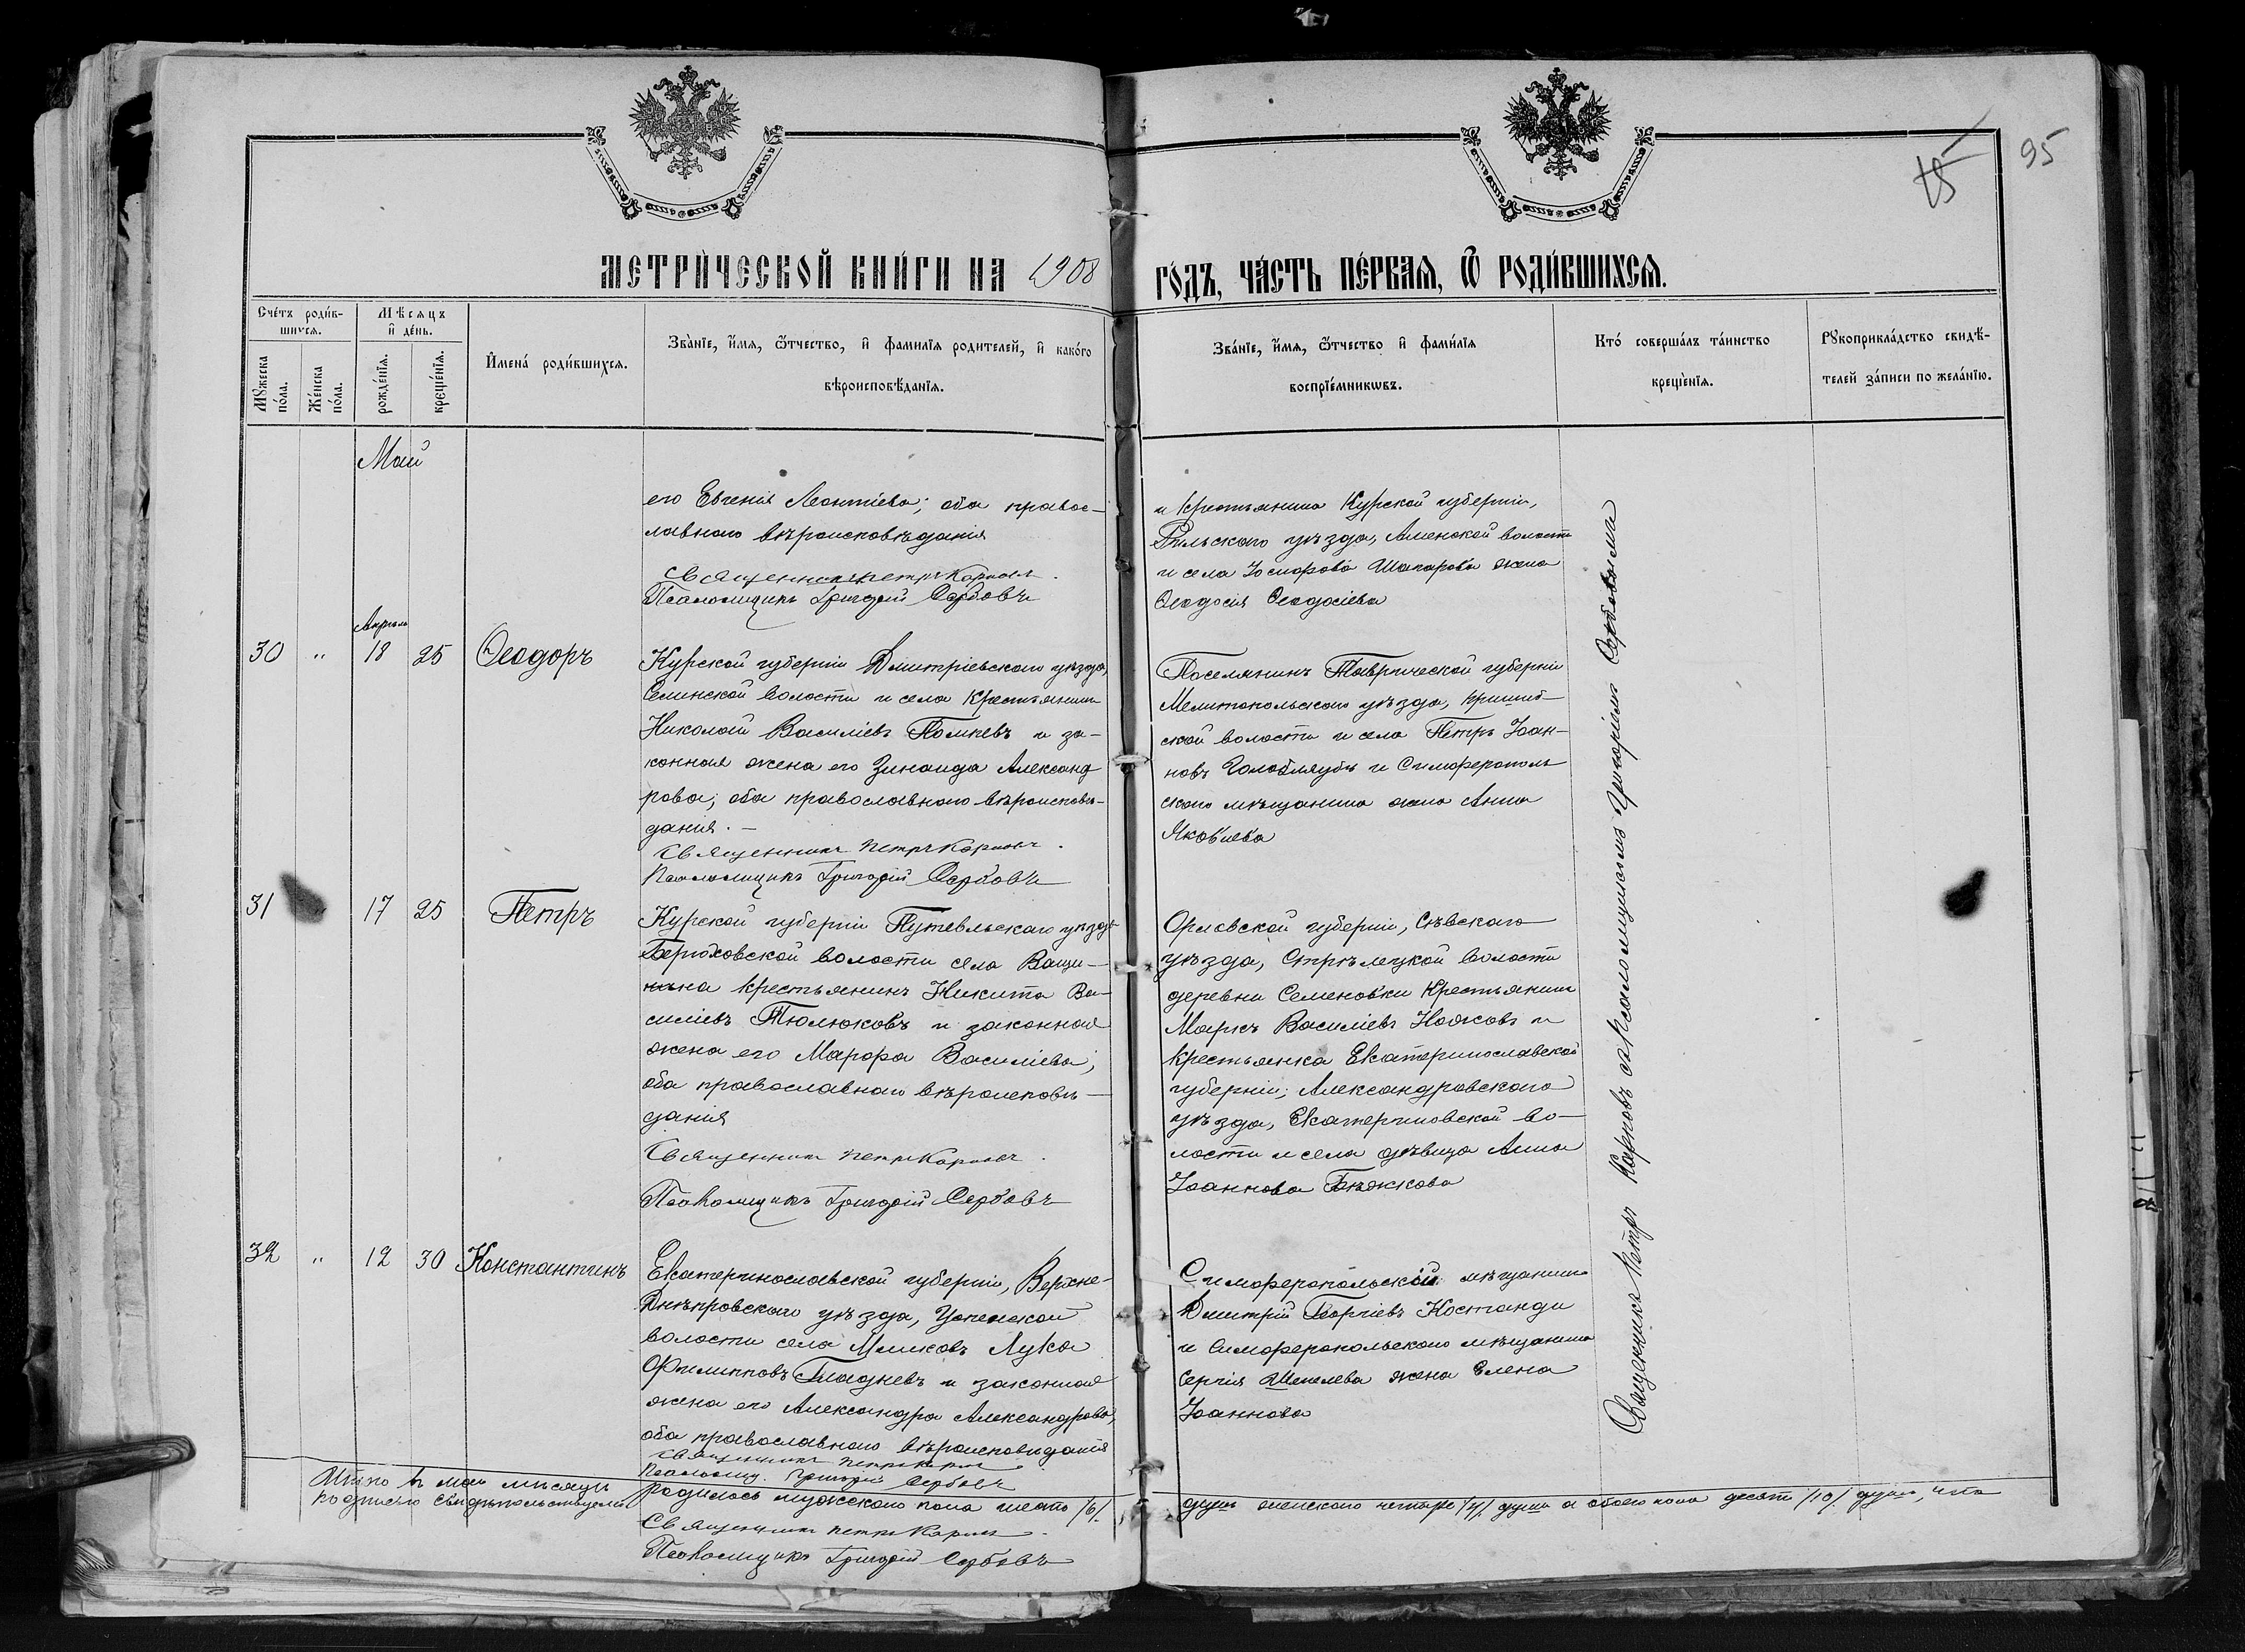 95
МЕТРИ́ЧЕСКОЙ КНИ́ГИ НА 1908 ГО́ДЪ, ЧА́СТЬ ПЕ́РВАѦ, Ѽ РОДИ́ВШИХСѦ.
Сче́тъ роди́в-
шихсѧ.
Мꙋжеска по́ла.
Же́нска по́ла.
Мѣсѧцъ
и де́нь.
рожде́нїѧ.
креще́нїѧ.
Имена́ роди́вшихсѧ.
Зва́нїе, и́мѧ, ѻ́тчество, и фами́лїѧ родителей, и како́го
вѣроисповѣ́данїѧ.
Зва́нїе, и́мѧ, ѻ́тчество и фами́лїѧ
воспрїе́мникѡвъ.
Кто́ соверша́лъ та́инство
креще́нїѧ.
Рꙋкоприкла́дство свидѣ́-
телей за́писи по жела́нїю.
Май
его Евгенія Леонтіева; оба правос-
лавнаго вѣроисповѣданія
Священникъ Петръ Карповъ.
Псаломщикъ Григорій Сербовъ
и крестьянина Курской губерніи,
Рыльскаго уѣзда, волости
и села жена
Ѳеодосія Ѳеодосіева
Апрѣль
30 " 18 25 Ѳеодоръ
Курской губерніи Дмитріевскаго уѣзда,
Селинской волости и села крестьянинъ
Николай Василіевъ и за-
конная жена его Зинаида Александ
рова; оба православнаго вѣроисповѣ-
данія. —
Священникъ Петръ Карповъ.
Псаломщикъ Григорій Сербовъ
Поселянинъ Таврической губерніи
Мелитопольскаго уѣзда, Пришиб-
ской волости и села Петръ Іоан-
новъ и Симферополь
скаго мѣщанина жена Анна
Яковлева
31 17 25 Петръ
Курской губерніи Путивльскаго уѣзда
Берюховской волости села Ващи-
нина крестьянинъ Никита Ва-
силіевъ Тюлюковъ и законная
жена его Марфа Василіева;
оба православнаго вѣроисповѣ-
данія
Священникъ Петръ Карповъ.
Псаломщикъ Григорій Сербовъ
Орловской губерніи, Сѣвскаго
уѣзда, Стрѣлецкой волости
деревни Семеновки крестьянинъ
Маркъ Василіевъ Ножовъ и
крестьянка Екатеринославской
губерніи, Александровскаго
уѣзда, Екатериновской во-
лости и села дѣвица Анна
Іоаннова Бѣжкова
32 " 12 30 Константинъ
Екатеринославской губерніи, Верхне-
Днѣпровскаго уѣзда, Успенской
волости села Млинковъ Лука
Филипповъ Гладневъ и законная
жена его Александра Александрова,
оба православнаго вѣроисповѣданія
Священникъ Петръ Карповъ
Псаломщ. Григорій Сербовъ
Симферопольскій мѣщанинъ
Дмитрій Георгіевъ Костанди
и Симферопольскаго мѣщанина
Сергія Шепелева жена Елена
Іоаннова
Священникъ Петръ Карповъ съ псаломщикомъ Григоріемъ Сербовымъ
Итого въ маѣ мѣсяцѣ родилось мужескаго пола шесть /6/. душъ женскаго четыре /4/. души а обоего пола десять /10/. душъ, что
подписью свидѣтельствуемъ
Священникъ Петръ Карповъ.
Псаломщикъ Григорій Сербовъ